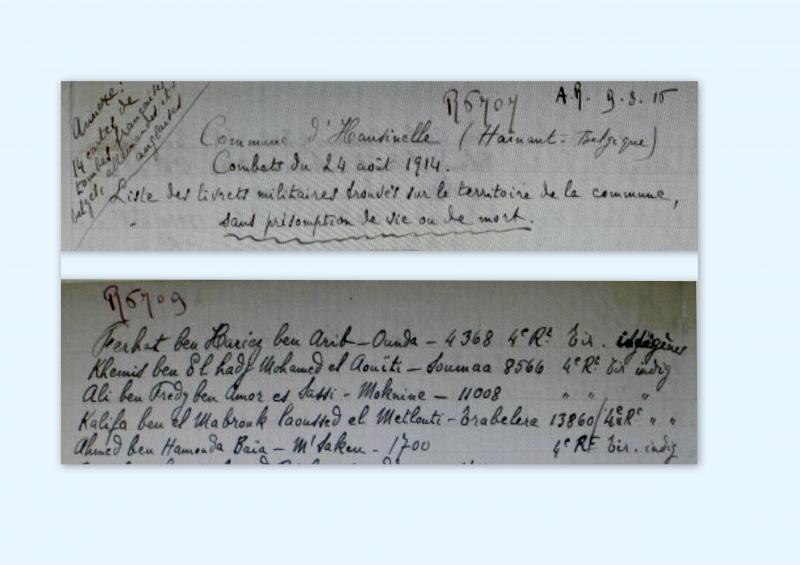 R6707
A.R. 9.3.15
Annexe:
14 cartes de
tombes françaises,
belges, allemandes et
anglaises
Commune d'Hansinelle (Hainaut - Belgique)
Combats du 24 août 1914.
Liste des livrets militaires trouvés sur le territoire de la commune,
sans présomption de vie ou de mort.
R6709
Ferhat ben Haricz ben Arib - Ounda - 4368 4e Rt Tir. indigènes
Khemis ben El hadj Mohamed el Aouïti - Soumaa 8566 4e Rt Tir indig
Ali ben Fredj ben Amor es Sassi - Moknine - 11008 " " "
Kalifa ben el Mabrouk Laoussed el Metlouti - Trabelera 13860/4e Rt " "
Ahmed ben Hamouda Baïa - M'Saken - 1700 4e Rt Tir. indig